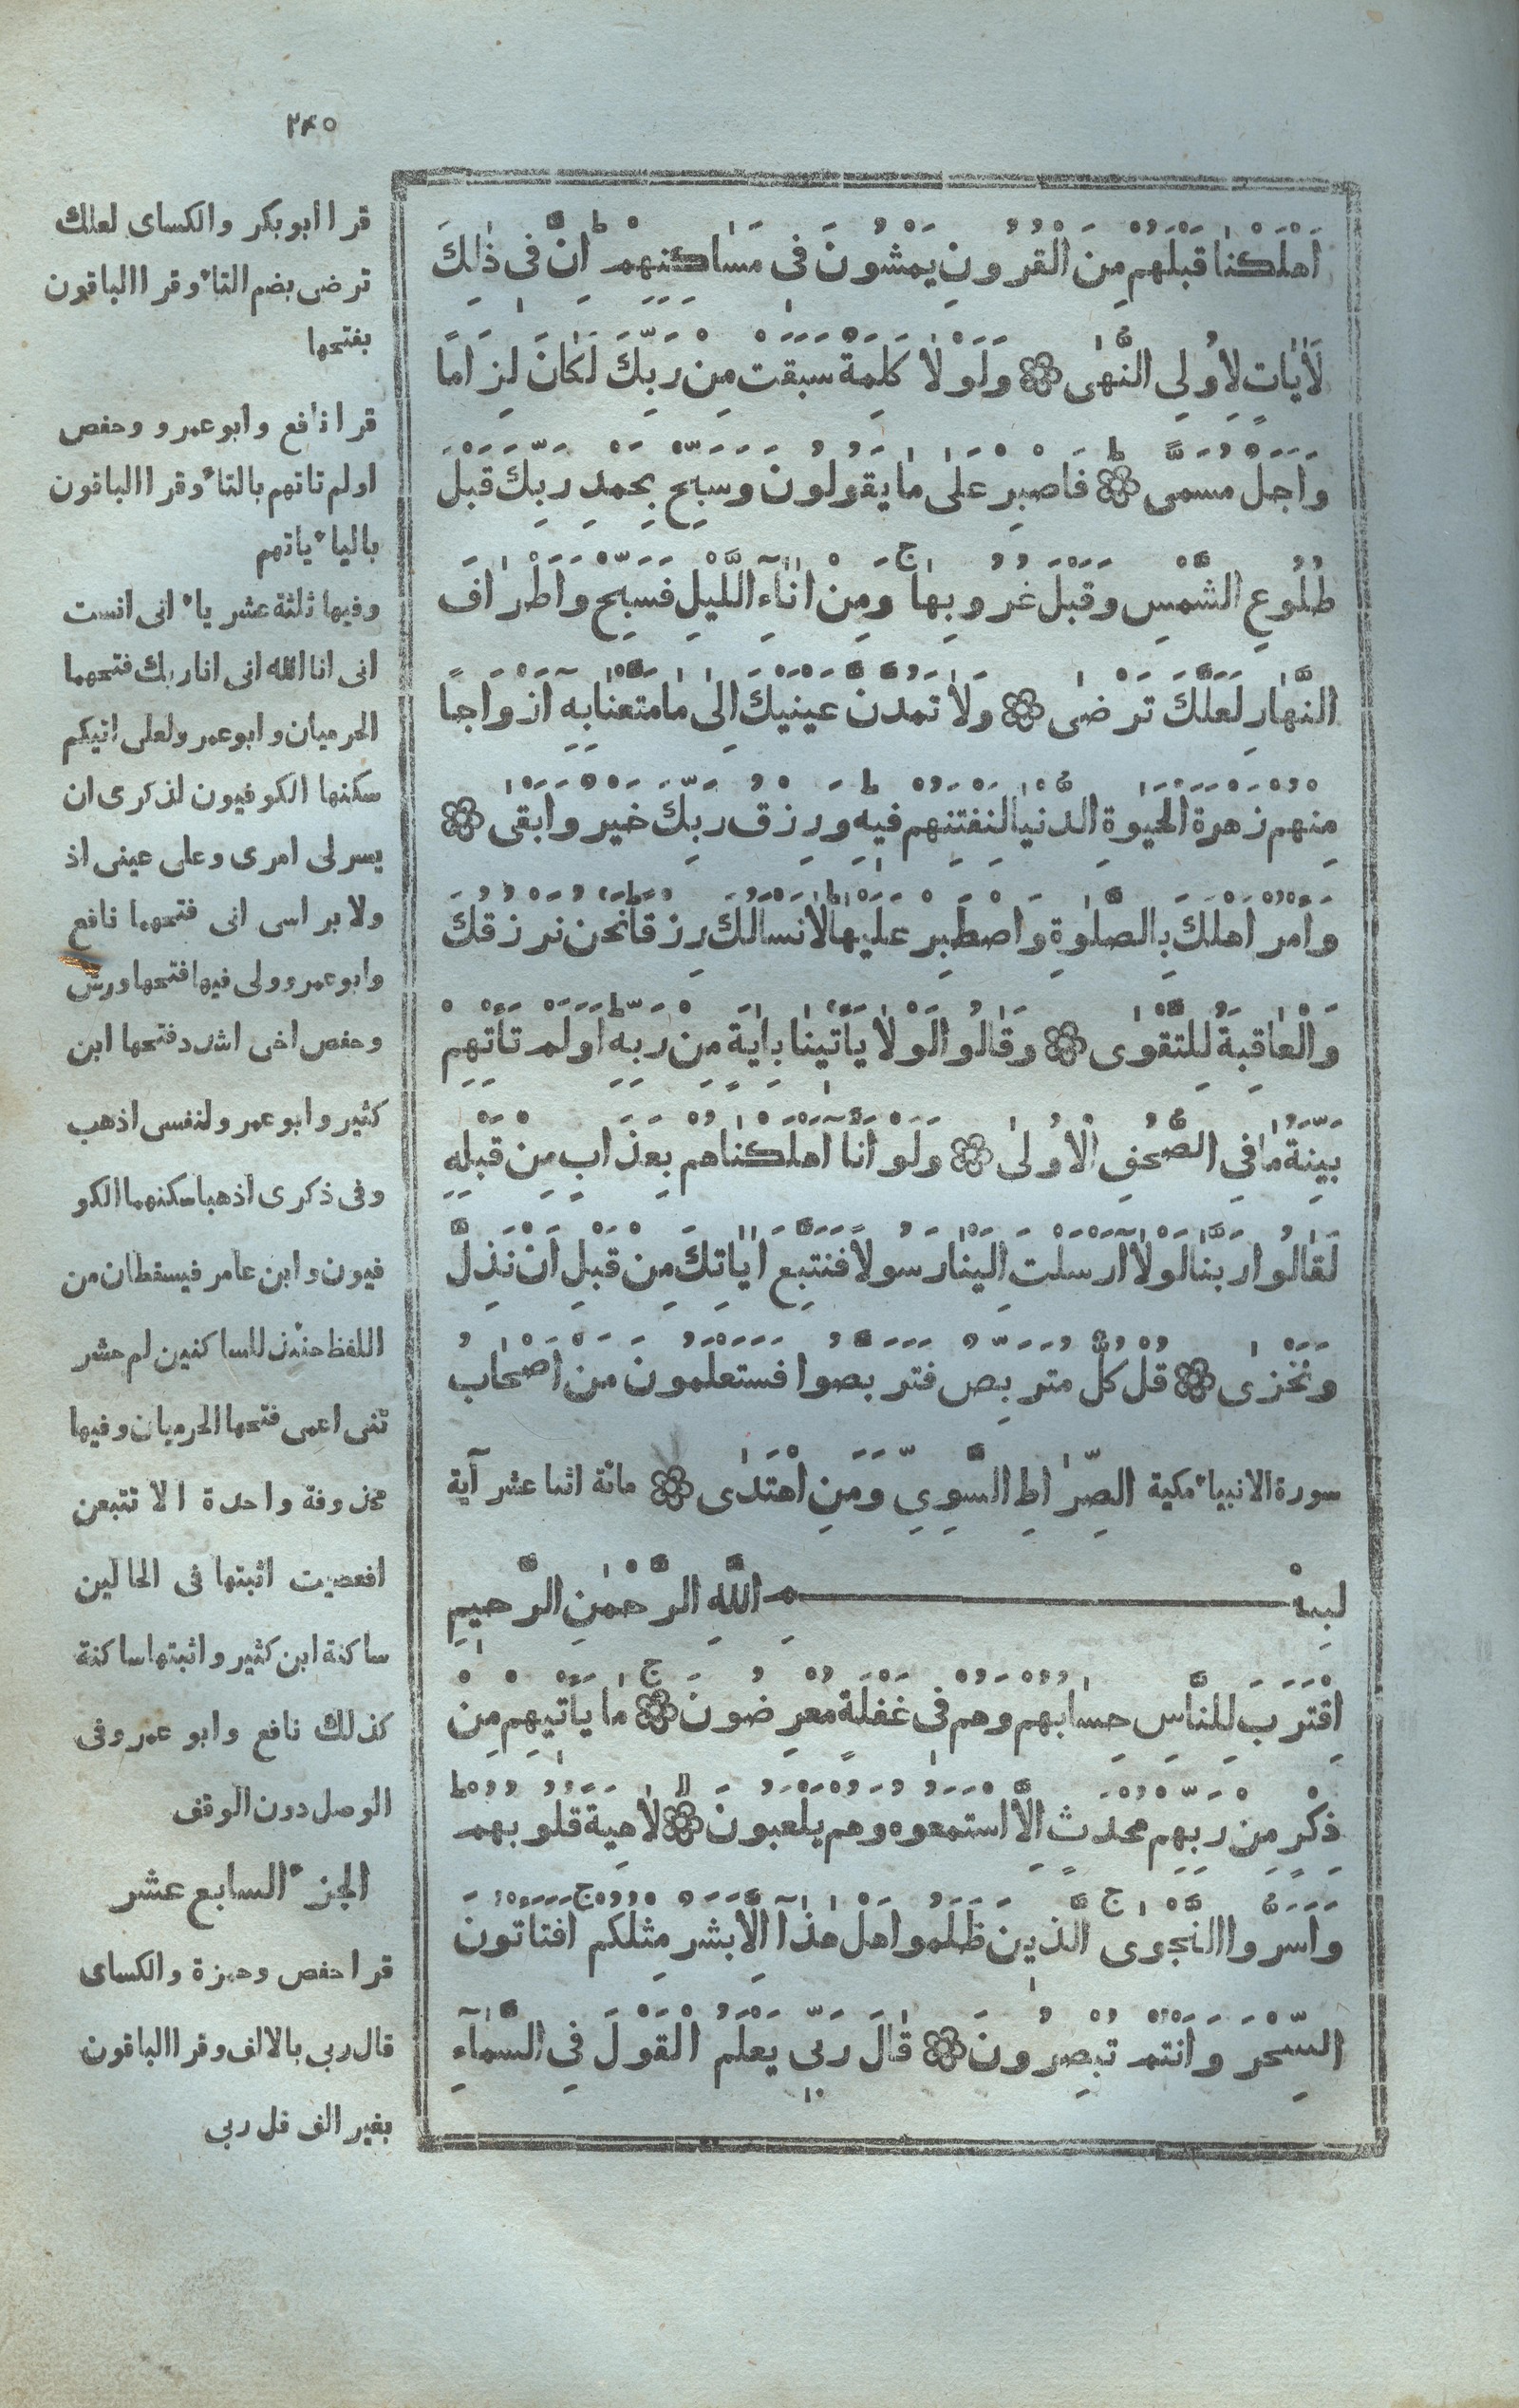 ٢٤٥
اَهْلَكْنَا قَبْلَهُمْ مِنَ الْقُرُونِ يَمْشُونَ فِى مَسَاكِنِهِمْ ط اِنَّ فِى ذٰلِكَ
لَاٰيَاتٍ لِاُولِى النُّهٰى وَلَوْلَا كَلِمَةٌ سَبَقَتْ مِنْ رَبِّكَ لَكَانَ لِزَامًا
وَاَجَلٌ مُسَمًّى ط فَاصْبِرْ عَلٰى مَا يَقُولُونَ وَسَبِّحْ بِحَمْدِ رَبِّكَ قَبْلَ
طُلُوعِ الشَّمْسِ وَقَبْلَ غُرُوبِهَا ج وَمِنْ اٰنَآءِ الَّيْلِ فَسَبِّحْ وَاَطْرَافَ
النَّهَارِ لَعَلَّكَ تَرْضٰى وَلَا تَمُدَّنَّ عَيْنَيْكَ اِلٰى مَا مَتَّعْنَا بِهٖٓ اَزْوَاجًا
مِنْهُمْ زَهْرَةَ الْحَيٰوةِ الدُّنْيَا لِنَفْتِنَهُمْ فِيهِ ط وَرِزْقُ رَبِّكَ خَيْرٌ وَاَبْقٰى
وَأْمُرْ اَهْلَكَ بِالصَّلٰوةِ وَاصْطَبِرْ عَلَيْهَا ط لَا نَسْأَلُكَ رِزْقًا ط نَحْنُ نَرْزُقُكَ
وَالْعَاقِبَةُ لِلتَّقْوٰى وَقَالُوا لَوْلَا يَأْتِينَا بِاٰيَةٍ مِنْ رَبِّهِ ط اَوَلَمْ تَأْتِهِمْ
بَيِّنَةُ مَا فِى الصُّحُفِ الْاُولٰى وَلَوْ اَنَّآ اَهْلَكْنَاهُمْ بِعَذَابٍ مِنْ قَبْلِهِ
لَقَالُوا رَبَّنَا لَوْلَآ اَرْسَلْتَ اِلَيْنَا رَسُولًا فَنَتَّبِعَ اٰيَاتِكَ مِنْ قَبْلِ اَنْ نَذِلَّ
وَنَخْزٰى قُلْ كُلٌّ مُتَرَبِّصٌ فَتَرَبَّصُوا فَسَتَعْلَمُونَ مَنْ اَصْحَابُ
سورة الانبياء مكية الصِّرَاطِ السَّوِيِّ وَمَنِ اهْتَدٰى مائة اثنا عشر آية
بِسْمِ اللّٰهِ الرَّحْمٰنِ الرَّحِيمِ
اِقْتَرَبَ لِلنَّاسِ حِسَابُهُمْ وَهُمْ فِى غَفْلَةٍ مُعْرِضُونَ ج مَا يَأْتِيهِمْ مِنْ
ذِكْرٍ مِنْ رَبِّهِمْ مُحْدَثٍ اِلَّا اسْتَمَعُوهُ وَهُمْ يَلْعَبُونَ لا لَاهِيَةً قُلُوبُهُمْ ط
وَاَسَرُّوا النَّجْوٰى ج الَّذِينَ ظَلَمُوا هَلْ هٰذَآ اِلَّا بَشَرٌ مِثْلُكُمْ ج اَفَتَأْتُونَ
السِّحْرَ وَاَنْتُمْ تُبْصِرُونَ قَالَ رَبِّى يَعْلَمُ الْقَوْلَ فِى السَّمَآءِ
قرا ابوبكر والكساى لعلك
ترضى بضم التاء وقرا الباقون
بفتحها
قرا نافع وابو عمرو وحفص
اولم تاتهم بالتاء وقرا الباقون
بالياء ياتهم
وفيها ثلثة عشر ياء انى انست
انى انا الله انى انا ربك فتحهما
الحرميان وابو عمر ولعلى اتيكم
سكنها الكوفيون لذكرى ان
يسر لى امرى وعلى عينى اذ
ولا براسى انى فتحهما نافع
وابو عمرو ولى فيها فتحها ورش
وحفص اخى اشدد فتحها ابن
كثير وابو عمر ولنفسى اذهب
وفى ذكرى اذهبا سكنهما الكو
فيون وابن عامر فيسقطان من
اللفظ حنئذ للساكنين لم حشر
تنى اعمى فتحها الحرميان وفيها
محذوفة واحدة الا تتبعن
افعصيت اثبتها فى الحالين
ساكنة ابن كثير واثبتها ساكنة
كذلك نافع وابو عمرو فى
الوصل دون الوقف
الجزء السابع عشر
قرا حفص وحمزة والكساى
قال ربى بالالف وقرا الباقون
بغير الف قل ربى